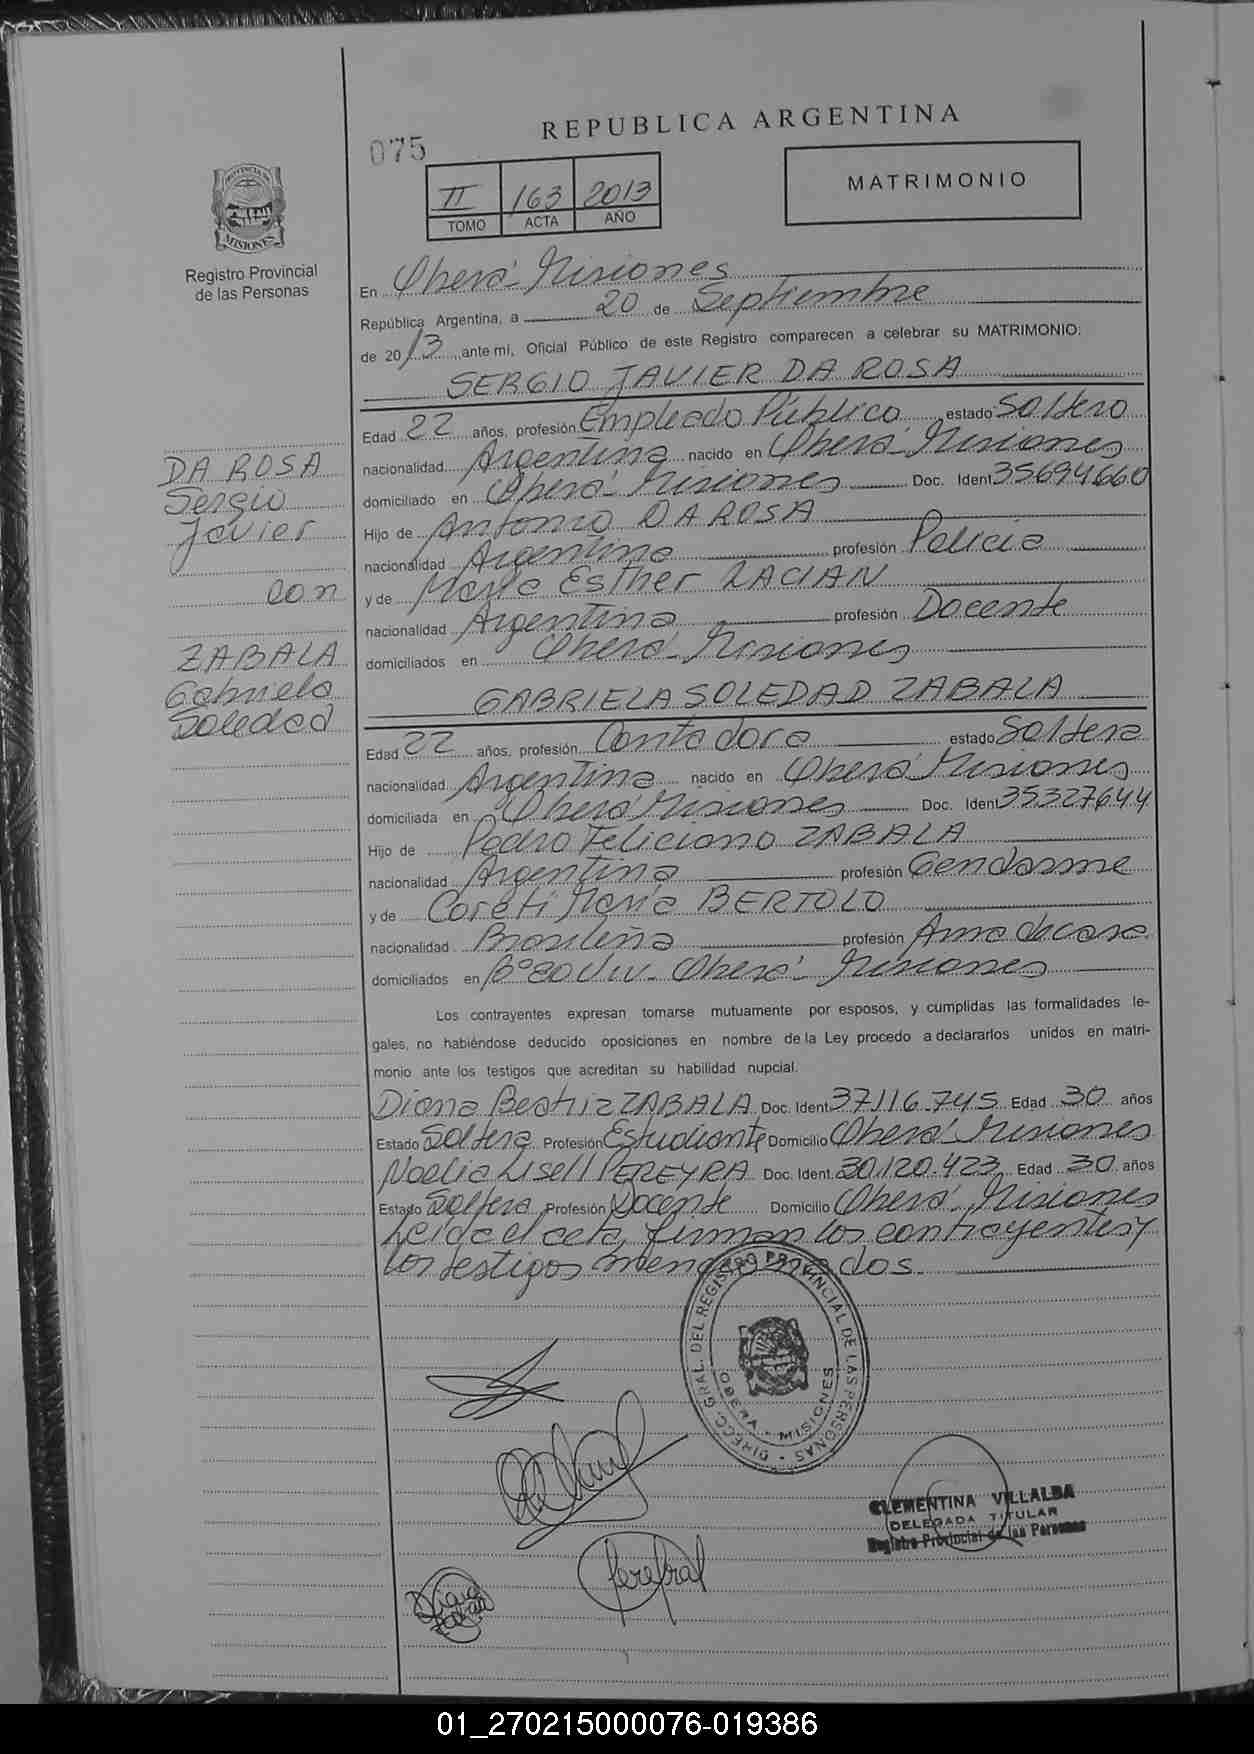 REPUBLICA ARGENTINA
075
II 163 2013
TOMO ACTA AÑO
MATRIMONIO
PROVINCIA DE
MISIONES
Registro Provincial
de las Personas
En Oberá - Misiones
República Argentina, a 20 de Septiembre
de 2013 ante mi, Oficial Público de este Registro comparecen a celebrar su MATRIMONIO:
SERGIO JAVIER DA ROSA
Edad 22 años, profesión Empleado Público estado Soltero
nacionalidad Argentina nacido en Oberá - Misiones
domiciliado en Oberá - Misiones Doc. Ident 35694660
Hijo de Antonio DA ROSA
nacionalidad Argentina profesión Policia
y de María Esther ZACIAN
nacionalidad Argentina profesión Docente
domiciliados en Oberá - Misiones
DA ROSA
Sergio
Javier
con
ZABALA
Gabriela
Soledad
GABRIELA SOLEDAD ZABALA
Edad 22 años, profesión Contadora estado Soltera
nacionalidad Argentina nacido en Oberá Misiones
domiciliada en Oberá Misiones Doc. Ident 35327644
Hijo de Pedro Feliciano ZABALA
nacionalidad Argentina profesión Gendarme
y de Coreti María BERTOLO
nacionalidad Brasileña profesión Ama de casa
domiciliados en B° 80 Viv - Oberá - Misiones
Los contrayentes expresan tomarse mutuamente por esposos, y cumplidas las formalidades le-
gales, no habiéndose deducido oposiciones en nombre de la Ley procedo a declararlos unidos en matri-
monio ante los testigos que acreditan su habilidad nupcial.
Diana Beatriz ZABALA Doc. Ident 37.116.745 Edad 30 años
Estado Soltera Profesión Estudiante Domicilio Oberá - Misiones
Noelia Lisell PEREYRA Doc. Ident 30.120.423 Edad 30 años
Estado Soltera Profesión Docente Domicilio Oberá - Misiones
Leida el acta, firman los contrayentes y
los testigos mencionados.
DIRECC. GRAL. DEL REGISTRO PROVINCIAL DE LAS PERSONAS
OBERA - MISIONES
CLEMENTINA VILLALBA
DELEGADA TITULAR
Registro Provincial de las Personas
01_270215000076-019386